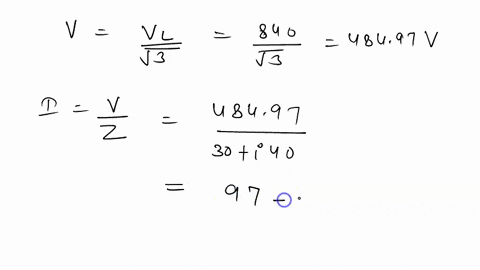 V = V_L / √3 = 840 / √3 = 484.97 V
I = V / Z = 484.97 / 30 + i 40
= 97 -